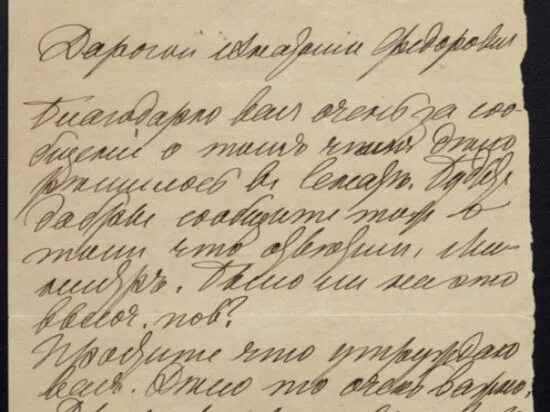 Дорогой Анатолий Федорович
Благодарю васъ очень за соо-
бщеніе о томъ что дѣло
рѣшилось въ Сенатѣ. Будьте
добры сообщите мнѣ о
томъ что
Было ли на это
высоч. пов?
Простите что утруждаю
васъ. Дѣло то очень важно.